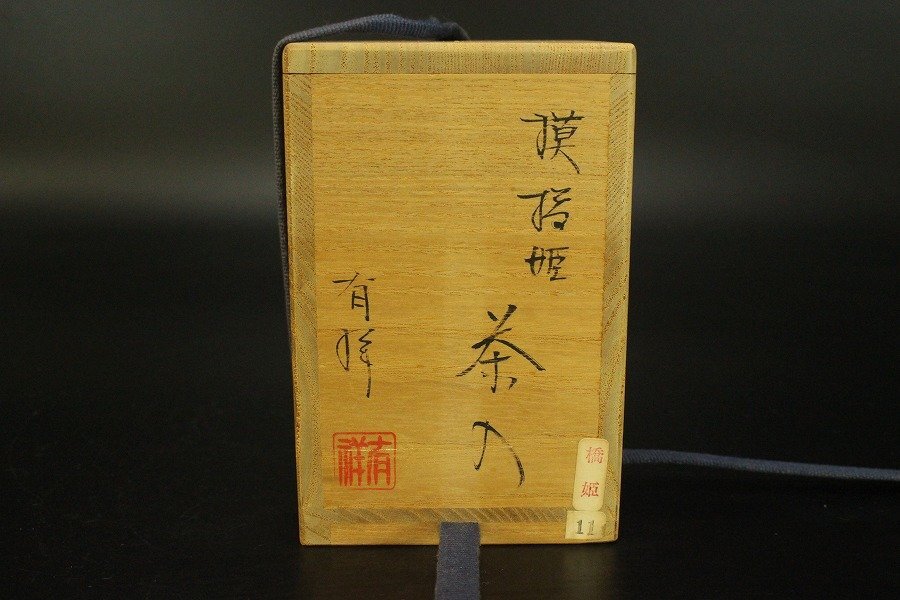 模橋姫
茶入
有祥
有祥
橋姫
11